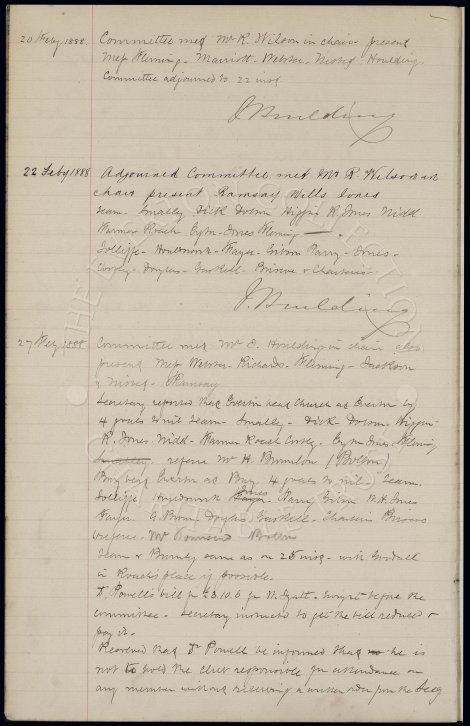 20 Feby 1888 Committee met Mr R. Wilson in chair present
Messrs Fleming - Marriott - Webster - Nisbet Houlding
Committee adjourned to 22 inst
J Houlding
22 Feby 1888 Adjourned Committee met Mr R Wilson in
chair present Ramsay Wills Jones
Team - Smalley Dick Dobson Higgins R. Jones Nidd
Warmer Roach Eyton-Jones Fleming
Jolliffe - Howarth - Fayer - Gibson Parry - Jones -
Corey - Douglas - Gaskell - Briscoe &
J. Houlding
27 Feby 1888 Committee met Mr E. Houlding in chair also
present Messrs Webster - Richards - Fleming - Jackson
& Nisbet - Ramsay
Secretary reported that Everton beat Church at Everton by
4 goals to nil Team - Smalley - Dick Dobson - Higgins
R. Jones Nidd - Warmer Roach Corey - Eyton Jones - Fleming
Smalley referee Mr H. (Bolton)
Everton at Bury 4 goals to nil Team.
Jolliffe Jones Parry Gibson W.H. Jones
Fayer. G. Douglas Gaskell - Briscoe
referee. Mr Bolton
Team v Burnley same as on 25 inst - with Goodall
in Roach's place if possible.
Dr. Powell's bill for £3.10.6 for brought before the
committee - Secretary instructed to get the bill reduced &
pay it.
Resolved that Dr Powell be informed that he is
not to hold the club responsible for attendance on
any member without receiving a written order from the Secy